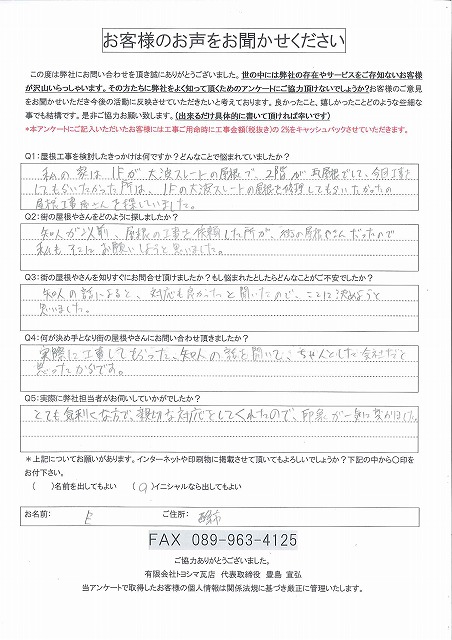 お客様のお声をお聞かせください
この度は弊社にお問い合わせを頂き誠にありがとうございました。世の中には弊社の存在やサービスをご存知ないお客様
が沢山いらっしゃいます。その方たちに弊社をよく知って頂くためのアンケートにご協力頂けないでしょうか?お客様のご意見
をお聞かせいただき今後の活動に反映させていただきたいと考えております。良かったこと、嬉しかったことどのような些細な
事でも結構です。是非ご協力お願い致します。(出来るだけ具体的に書いて頂ければ幸いです)
*本アンケートにご記入いただいたお客様には工事ご用命時に工事金額(税抜き)の 2%をキャッシュバックさせていただきます。
Q1:屋根工事を検討したきっかけは何ですか?どんなことで悩まれていましたか?
私の家は1Fが大波スレートの屋根で、2階が瓦屋根でして、今回工事を
してもらいたかった所は、1Fの大波スレートの屋根を修理してもらいたかったの
屋根工事屋さんを探していました。
Q2:街の屋根やさんをどのように探しましたか?
知人が以前、屋根の工事を依頼した所が、街の屋根やさんだったので
私もそこにお願いしようと思いました。
Q3:街の屋根やさんを知りすぐにお問合せ頂けましたか?もし悩まれたとしたらどんなことがご不安でしたか?
知人の話によると、対応も良かったと聞いたので、ここに決めようと
思いました。
Q4:何が決め手となり街の屋根やさんにお問い合わせ頂きましたか?
実際に工事してもらった、知人の話を聞いて、ちゃんとした会社だと
思ったからです。
Q5:実際に弊社担当者がお伺いしていかがでしたか?
とても気さくな方で、親切な対応をしてくれたので、印象が一気に変わりました。
*上記についてお願いがあります。インターネットや印刷物に掲載させて頂いてもよろしいでしょうか?下記の中から〇印を
お付下さい。
( )名前を出してもよい (○)イニシャルなら出してもよい
お名前: E ご住所:
FAX 089-963-4125
ご協力ありがとうございました。
有限会社トヨシマ瓦店 代表取締役 豊島 宣弘
当アンケートで取得したお客様の個人情報は関係法規に基づき厳正に管理いたします。